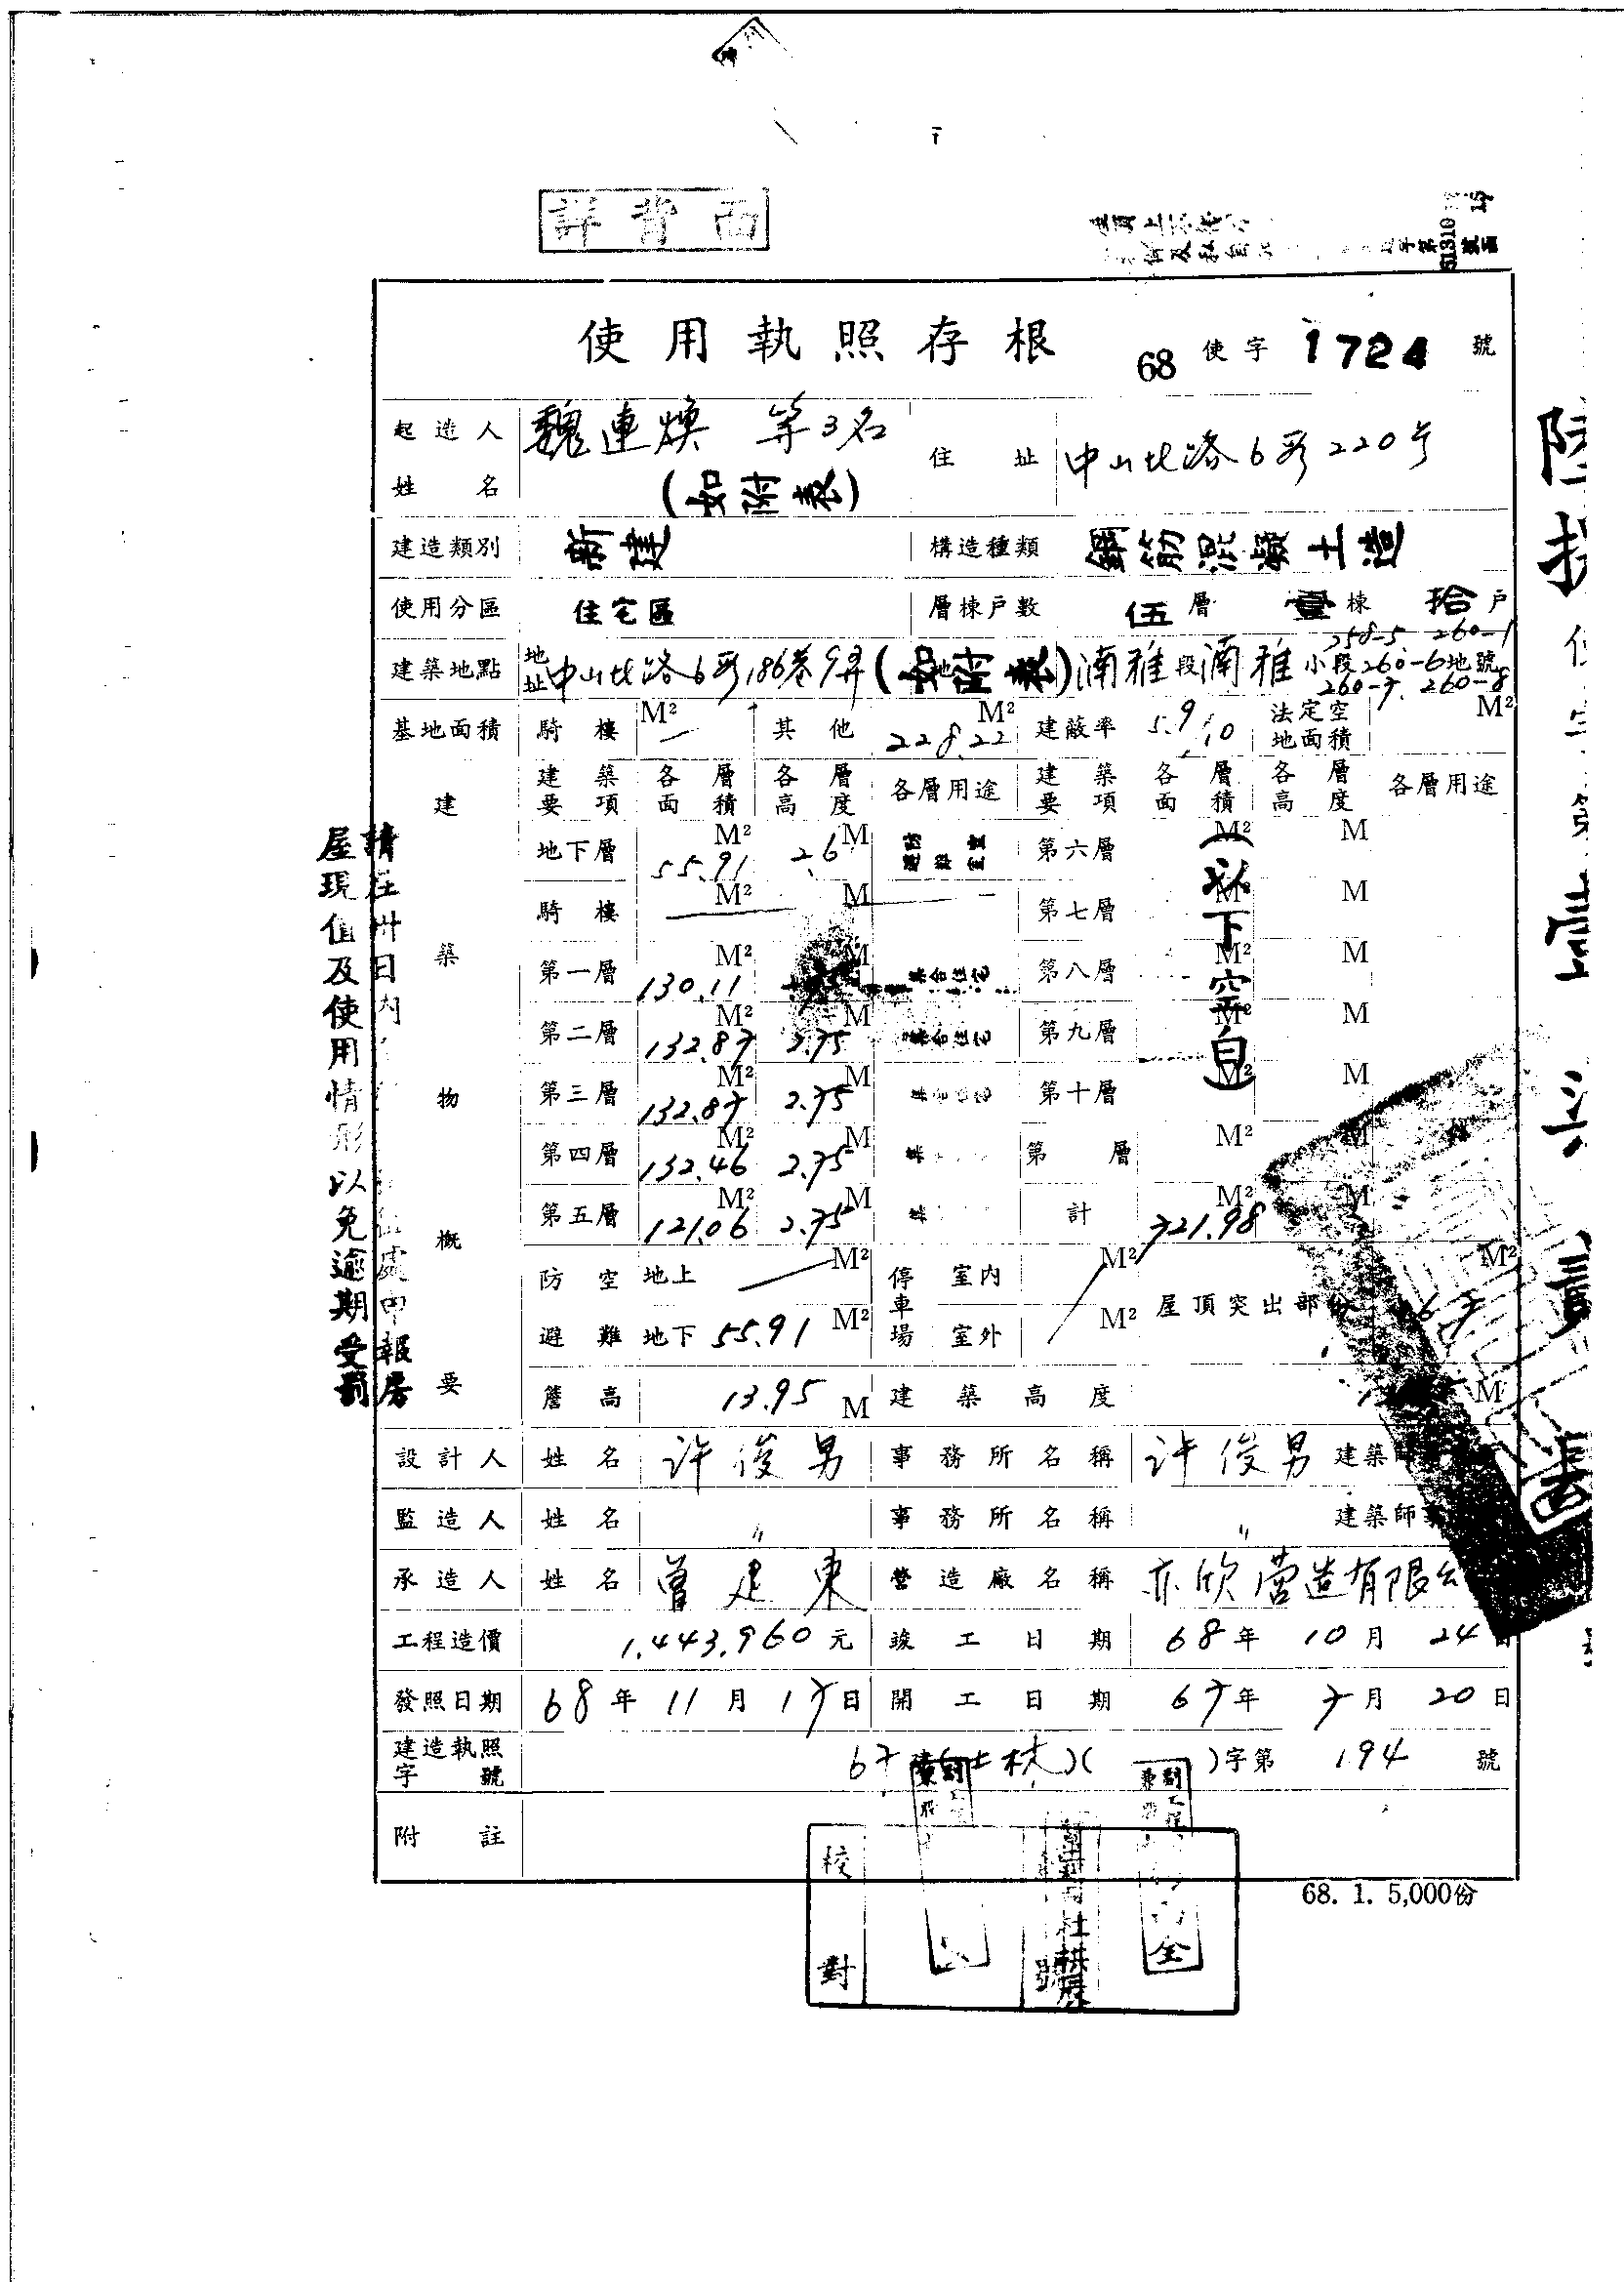 詳背面
使用執照存根 68 使字 1724 號
起造人姓名 魏連煥 等3名 (如附表) 住址 中山北路6段220号
建造類別 新建 構造種類 鋼筋混凝土造
使用分區 住宅區 層棟戶數 伍層 壹棟 拾戶
258-5. 260-1
建築地點 地址 中山北路6段186巷9弄 湳雅段湳雅小段260-6地號
260-7. 260-8
基地面積 騎樓 M² 其他 228.22 M² 建蔽率 5.9/10 法定空地面積 M²
建築物概要
建築要項 各層面積 各層高度 各層用途 建築要項 各層面積 各層高度 各層用途
地下層 55.91 M² 2.6 M 第六層 M² M
騎樓 M² M 第七層 M² M
第一層 130.11 M² M 集合住宅 第八層 M² M
第二層 132.87 M² 2.75 M 集合住宅 第九層 M² M
第三層 132.87 M² 2.75 M 第十層 M² M
第四層 132.46 M² 2.75 M 第 層 M² M
第五層 121.06 M² 2.75 M 計 721.98 M² M
(以下空白)
防空避難 地上 M² 停車場 室內 M² 屋頂突出部 M²
地下 55.91 M² 室外 M²
簷高 13.95 M 建築高度 M
設計人 姓名 許俊男 事務所名稱 許俊男 建築
監造人 姓名 〃 事務所名稱 〃 建築師
承造人 姓名 曾建東 營造廠名稱 亦欣營造有限
工程造價 1,443,960元 竣工日期 68年10月24日
發照日期 68年11月17日 開工日期 67年7月20日
建造執照字號 67 建(士林)( )字第 194 號
附註
68. 1. 5,000份
校對
請在卅日內
申報房
屋現值及使用情形以免逾期受罰